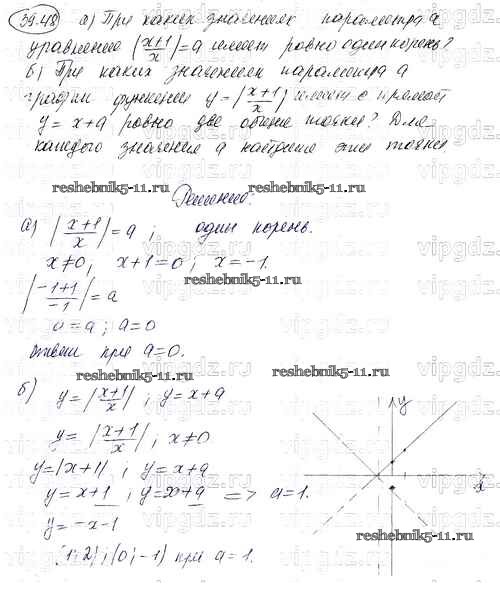 39.48 а) При каких значениях параметра a
уравнение |x+1/x|=a имеет ровно один корень?
б) При каких значениях параметра a
график функции y=|x+1/x| имеет с прямой
y=x+a ровно две общие точки? Для
каждого значения a найдите эти точки
reshebnik5-11.ru
reshebnik5-11.ru
Решение:
а) |x+1/x|=a ; один корень.
x≠0, x+1=0; x=-1.
reshebnik5-11.ru
|-1+1/-1|=a
0=a; a=0
ответ при a=0.
reshebnik5-11.ru
reshebnik5-11.ru
б) y=|x+1/x| ; y=x+a
y=|x+1/x|, x≠0
y=|x+1| ; y=x+a
y=x+1 ; y=x+a => a=1.
y=-x-1
(1;2);(0;-1) при a=1.
y
x
reshebnik5-11.ru
reshebnik5-11.ru